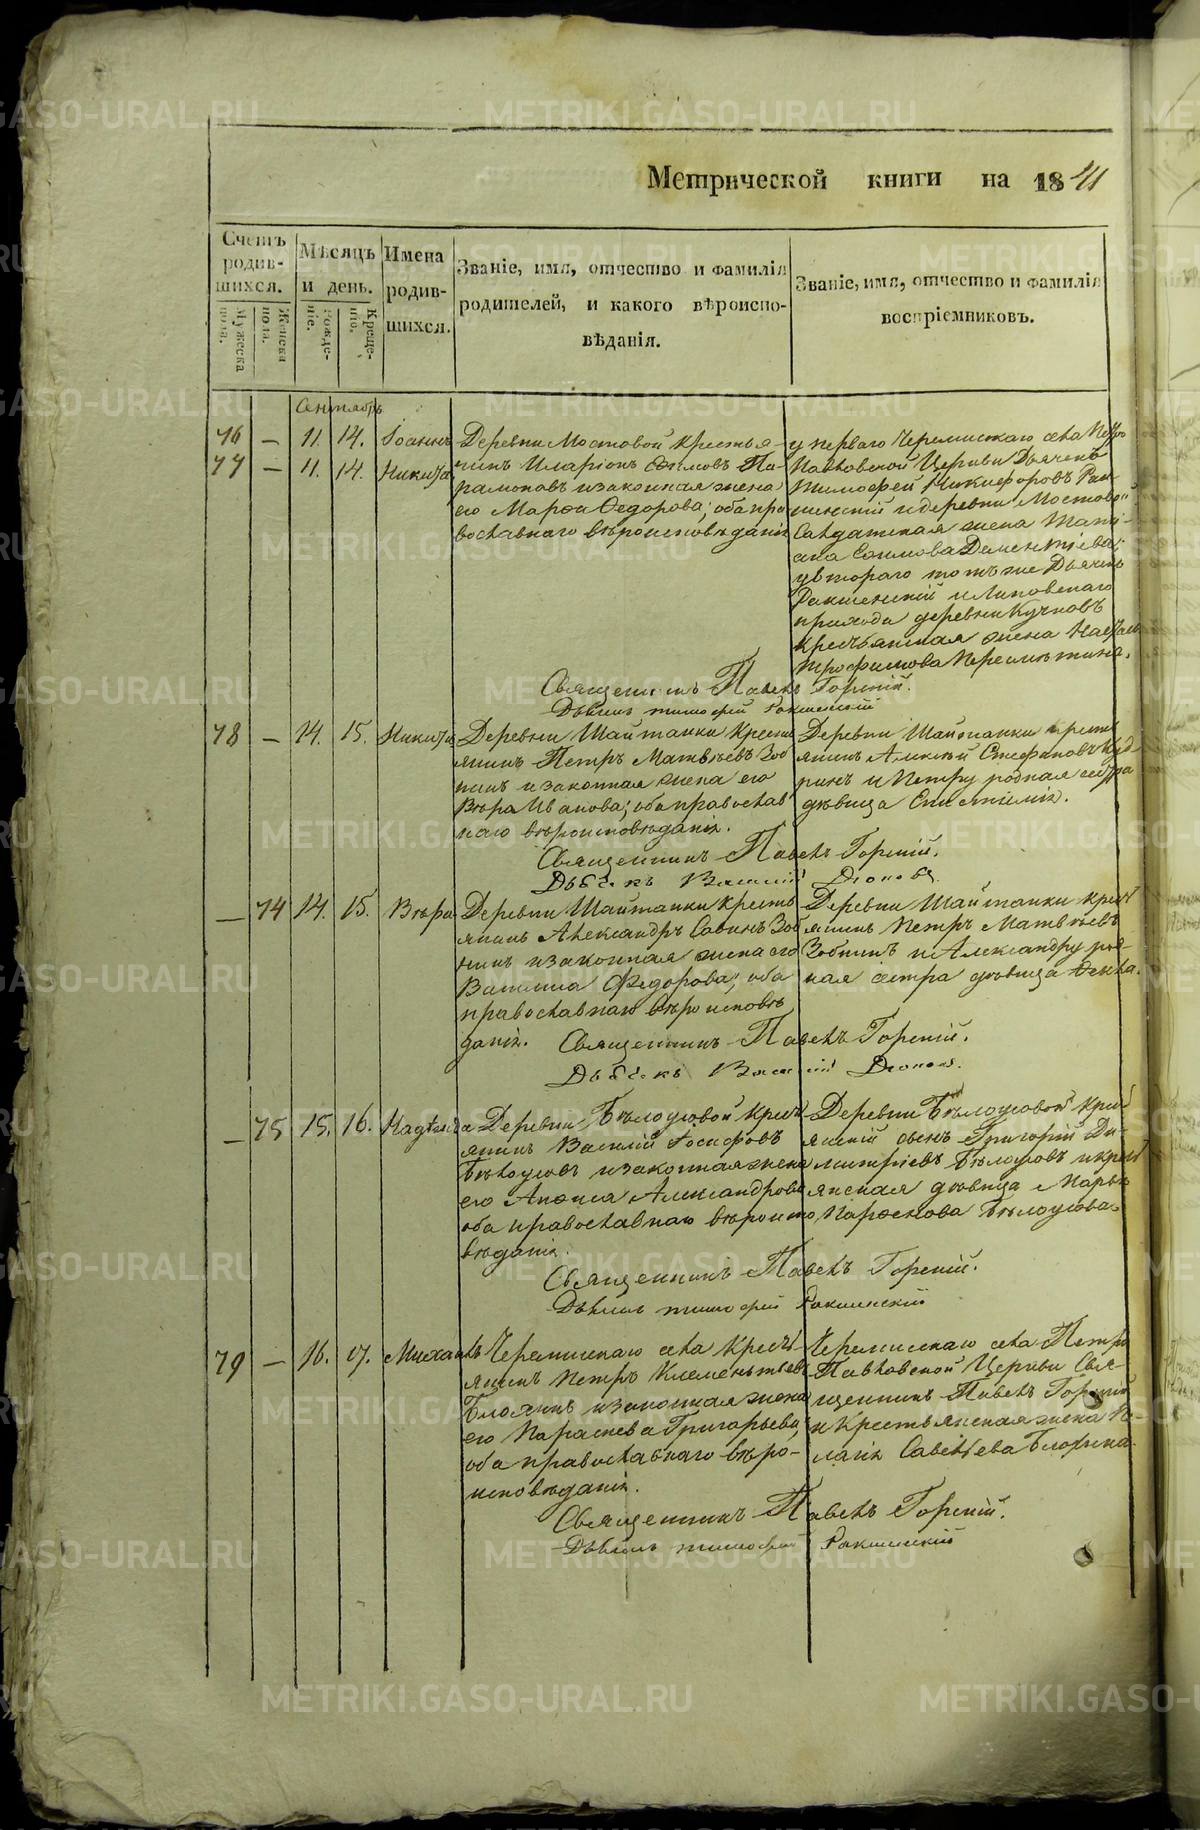 Метрической книги на 1841
Счетъ родив-шихся.
Мужеска пола.
Женска пола.
Мѣсяцъ и день.
Рожде-ніе.
Креще-ніе.
Имена родив-шихся.
Званіе, имя, отчество и фамилія
родителей, и какого вѣроиспо-
вѣданія.
Званіе, имя, отчество и фамилія
воспріемниковъ.
Сентябрь
76 — 11. 14. Іоаннъ
77 — 11. 14. Никита
Деревни Мостовой крестья-
нинъ Иларіонъ Ефимовъ Па-
рамоновъ и законная жена
его Марфа Федорова; оба пра
вославнаго вѣроисповѣданія
у перваго Черемисскаго села Петро
Павловской Церкви Дьячекъ
Тимофей Никифоровъ
и деревни Мостовой
Салдатская жена Тати-
ана Дементіева;
у втораго тотъ же Дьячекъ
и Липовскаго
прихода деревни
крестьянская жена
Трофимова
Священникъ Павелъ Горскій.
Дьячекъ Тимофей
78 — 14. 15. Никита
Деревни Шайтанки крестья
янинъ Петръ Матвѣевъ Зоб
нинъ и законная жена его
Вѣра Иванова; оба православ
наго вѣроисповѣданія.
Деревни Шайтанки крестья
янинъ Алексѣй Стефановъ Куд
ринъ и Петру родная сестра
дѣвица
Священникъ Павелъ Горскій.
Дьячекъ Василій
— 74 14. 15. Вѣра
Деревни Шайтанки кресть
янинъ Александръ Савинъ Зоб
нинъ и законная жена его
Васлиса Федорова; оба
православнаго вѣроисповѣ
данія.
Деревни Шайтанки крест
янинъ Петръ Матвѣевъ
Зобнинъ и Александру род-
ная сестра дѣвица Фекла.
Священникъ Павелъ Горскій.
Дьячекъ Василій
— 75 15. 16. Надежда
Деревни Бѣлоусовой крест
янинъ Василій Іосифовъ
Бѣлоусовъ и законная жена
его Анфиса Александрова
оба православнаго вѣроиспо
вѣданія.
Деревни Бѣлоусовой крест
янскій сынъ Григорій Ди-
митріевъ Бѣлоусовъ и крест
янская дѣвица Марья
Парфенова Бѣлоусова.
Священникъ Павелъ Горскій.
Дьячекъ Тимофей
79 — 16. 17. Михаилъ
Черемисскаго села крест
янинъ Петръ Клементьевъ
и законная жена
его Параскева Григорьева;
оба православнаго вѣро-
исповѣданія.
Черемисскаго села Петро
Павловской Церкви Свя-
щенникъ Павелъ Горскій
и Крестьянская жена
Савельева
Священникъ Павелъ Горскій.
Дьячекъ Тимофей
METRIKI.GASO-URAL.RU